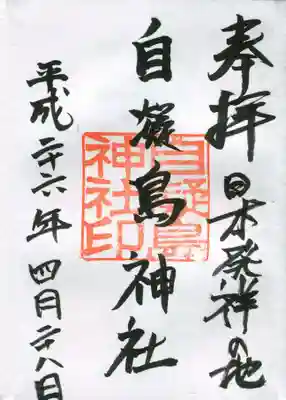 奉拝 日本発祥の地
自凝島神社
自凝島神社印
平成二十六年 四月二十八日